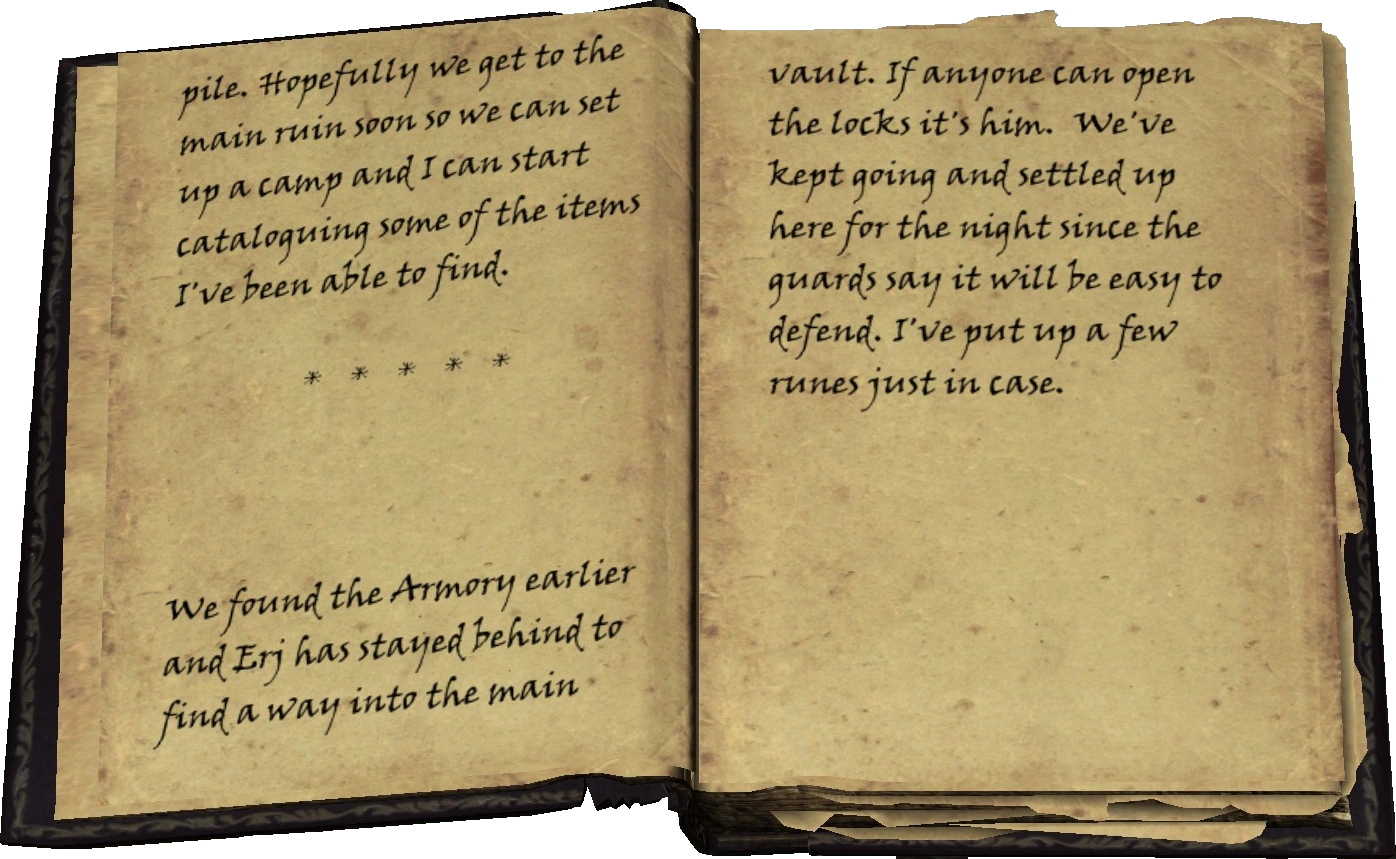 pile. Hopefully we get to the
main ruin soon so we can set
up a camp and I can start
cataloguing some of the items
I've been able to find.
* * * * *
We found the Armory earlier
and Erj has stayed behind to
find a way into the main
vault. If anyone can open
the locks it's him. We've
kept going and settled up
here for the night since the
guards say it will be easy to
defend. I've put up a few
runes just in case.